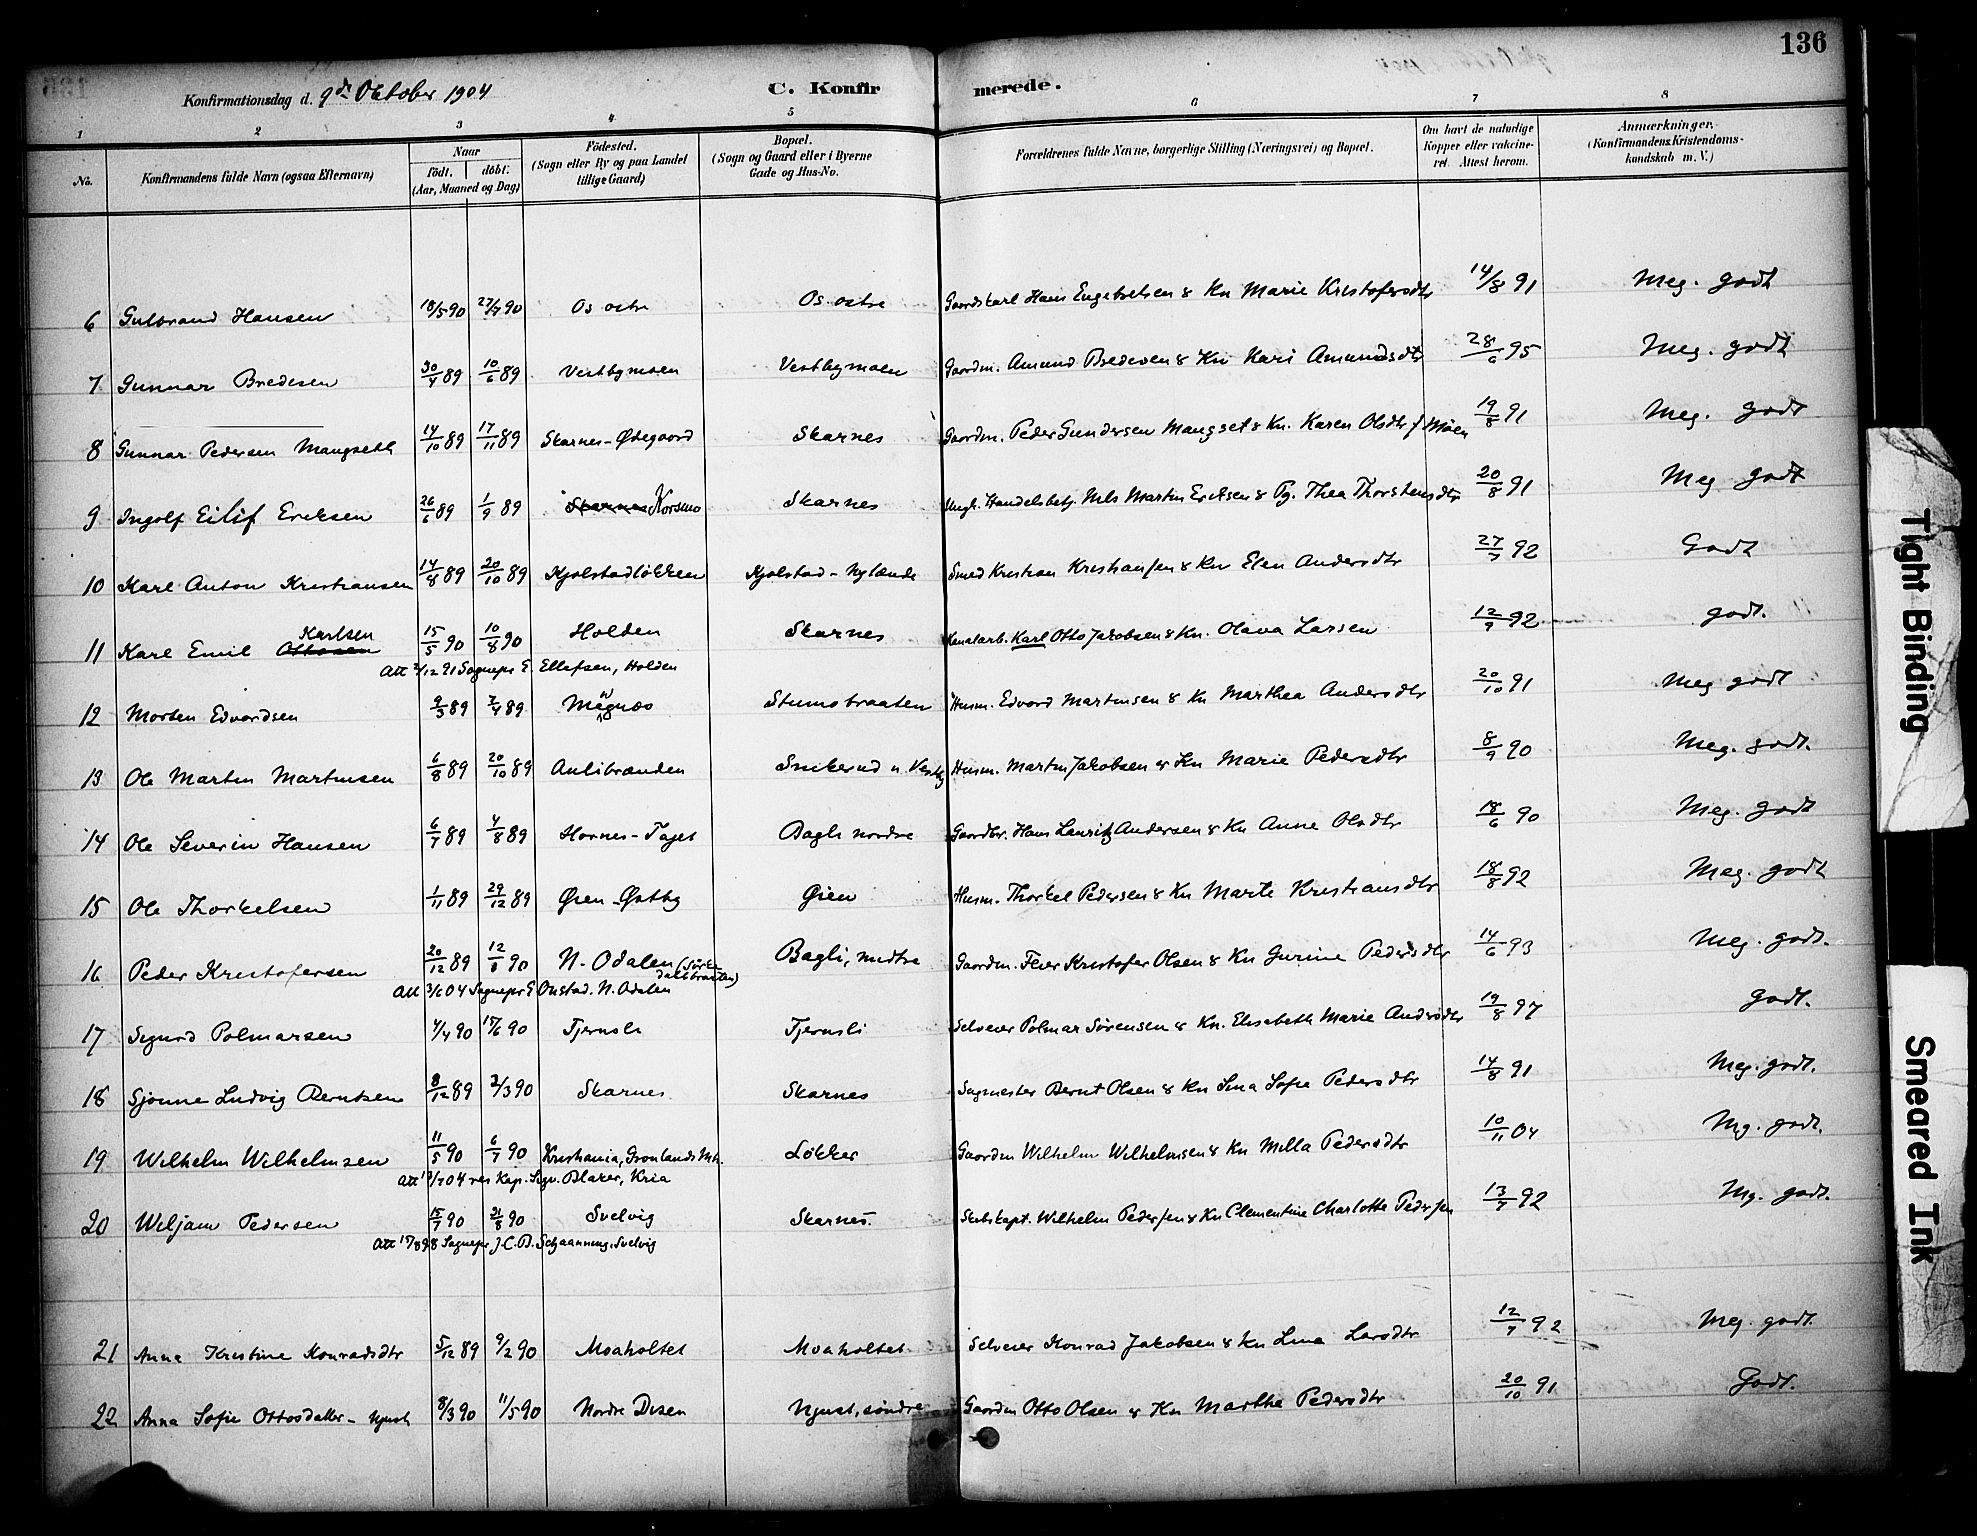 136
Konfirmationsdag d. 9de Oktober 1904 C. Konfirmerede.
1 2 3 4 5 6 7 8
No. Konfirmandens fulde Navn (ogsaa Efternavn) Naar født. døbt. (Aar, Maaned og Dag) Fødested. (Sogn eller By og paa Landet tillige Gaard) Bopæl. (Sogn og Gaard eller i Byerne Gade og Hus-No. Forældrenes fulde Navne, borgerlige Stilling (Næringsvei) og Bopæl. Om havt de naturlige Kopper eller vaccineret. Attest herom. Anmærkninger. (Konfirmandens Kristendomskundskab m. V.)
6 Gulbrand Hansen 18/5 90 27/7 90 Os østre Os østre Gaardskarl Hans Engebretsen & Kn Marie Kristofersdtr 14/8 91 Meg. godt
7 Gunnar Bredesen 30/4 89 10/6 89 Vestbymoen Vestbymoen Gaardm. Amund Bredesen & Kn Kari Amundsdtr 28/6 95 Meg. godt
8 Gunnar Pedersen Mangseth 14/10 89 17/11 89 Skarnes-Ødegaard Skarnes Gaardm. Peder Gundersen Mangset & Kn. Karen Olsdtr f Moen 19/8 91 Meg. godt
9 Ingolf Eilif Eriksen 26/6 89 1/9 89 Skarnes Korsmo Skarnes Ungk. Handelsbetj. Nils Martin Eriksen & Pg. Thea Thorstensdtr 20/8 91 Meg godt
10 Karl Anton Kristiansen 14/8 89 20/10 89 Kjølstadløkken Kjølstad-Nylænde Smed Kristian Kristiansen & Kn Elen Andersdtr 27/7 92 Godt
11 Karl Emil Ottosen Karlsen 15/5 90 10/8 90 Holden Skarnes Kanalarb. Karl Otto Jakobsen & Kn. Olava Larsen 12/9 92 godt.
Att 2/12 91 Sognepr E Ellefsen, Holden
12 Morten Edvardsen 9/3 89 7/4 89 Stumobraaten Husm. Edvard Martinsen & Kn Marthea Andersdtr 20/10 91 Meg godt
13 Ole Martin Martinsen 6/8 89 20/10 89 Aulibrænden Snekerud u Vestby Husm. Martin Jakobsen & Kn Marie Pedersdtr 8/9 90 Meg. godt.
14 Ole Severin Hansen 6/7 89 4/8 89 Hornes-Taget Bagli nordre Gaardbr. Hans Lauritz Andersen & Kn Anne Olsdtr 18/6 90 Meg. godt
15 Ole Thorkelsen 1/11 89 29/12 89 Øien-Østby Øien Husm. Thorkel Pedersen & Kn Marte Kristiansdtr 18/8 92 Meg. godt
16 Peder Kristofersen 20/12 89 12/8 90 N. Odalen (Sørke dalsbraaten) Bagli, midtre Gaardm. Kristofer Olsen & Kn Gurine Pedersdtr 14/6 93 Meg. godt.
Att 3/6 04 Sognepr E Onstad. N. Odalen
17 Sigurd Polmarsen 4/4 90 15/6 90 Tjernsli Tjernsli Selveier Polmar Sørensen & Kn. Elisabeth Marie Andersdtr 19/8 97 Godt.
18 Sjønne Ludvig Berntsen 8/12 89 2/3 90 Skarnes Skarnes Sagmester Bernt Olsen & Kn Lina Sofie Pedersdtr 14/8 91 Meg. godt.
19 Wilhelm Wilhelmsen 11/5 90 6/7 90 Kristiania, Grønlands Mh. Løkker Gaardm Wilhelm Wilhelmsen & Kn Milla Pedersdtr 10/11 04 Mg. godt.
Att 13/7 04 res Kap. Sigv. Blaker, Kria
20 Wiljam Pedersen 15/7 90 31/8 90 Svelvig Skarnes. Skibskapt. Wilhelm Pedersen & Kn Clementine Charlotte Pedersen 13/7 92 Mg. godt.
Att 15/8 98 Sognepr J. C. B. Schaanning. Svelvig
21 Anna Kristine Konradsdtr 5/12 89 9/2 90 Moaholtet Moaholtet Selveier Konrad Jakobsen & Kn Lina Larsdtr 12/9 92 Meg. godt.
22 Anna Sofie Ottosdatter-Njust 8/3 90 11/5 90 Nordre Disen Njust, søndre Gaardm Otto Olsen & Kn Marthe Pedersdtr 20/10 91 Godt.
Tight Binding
Smeared Ink